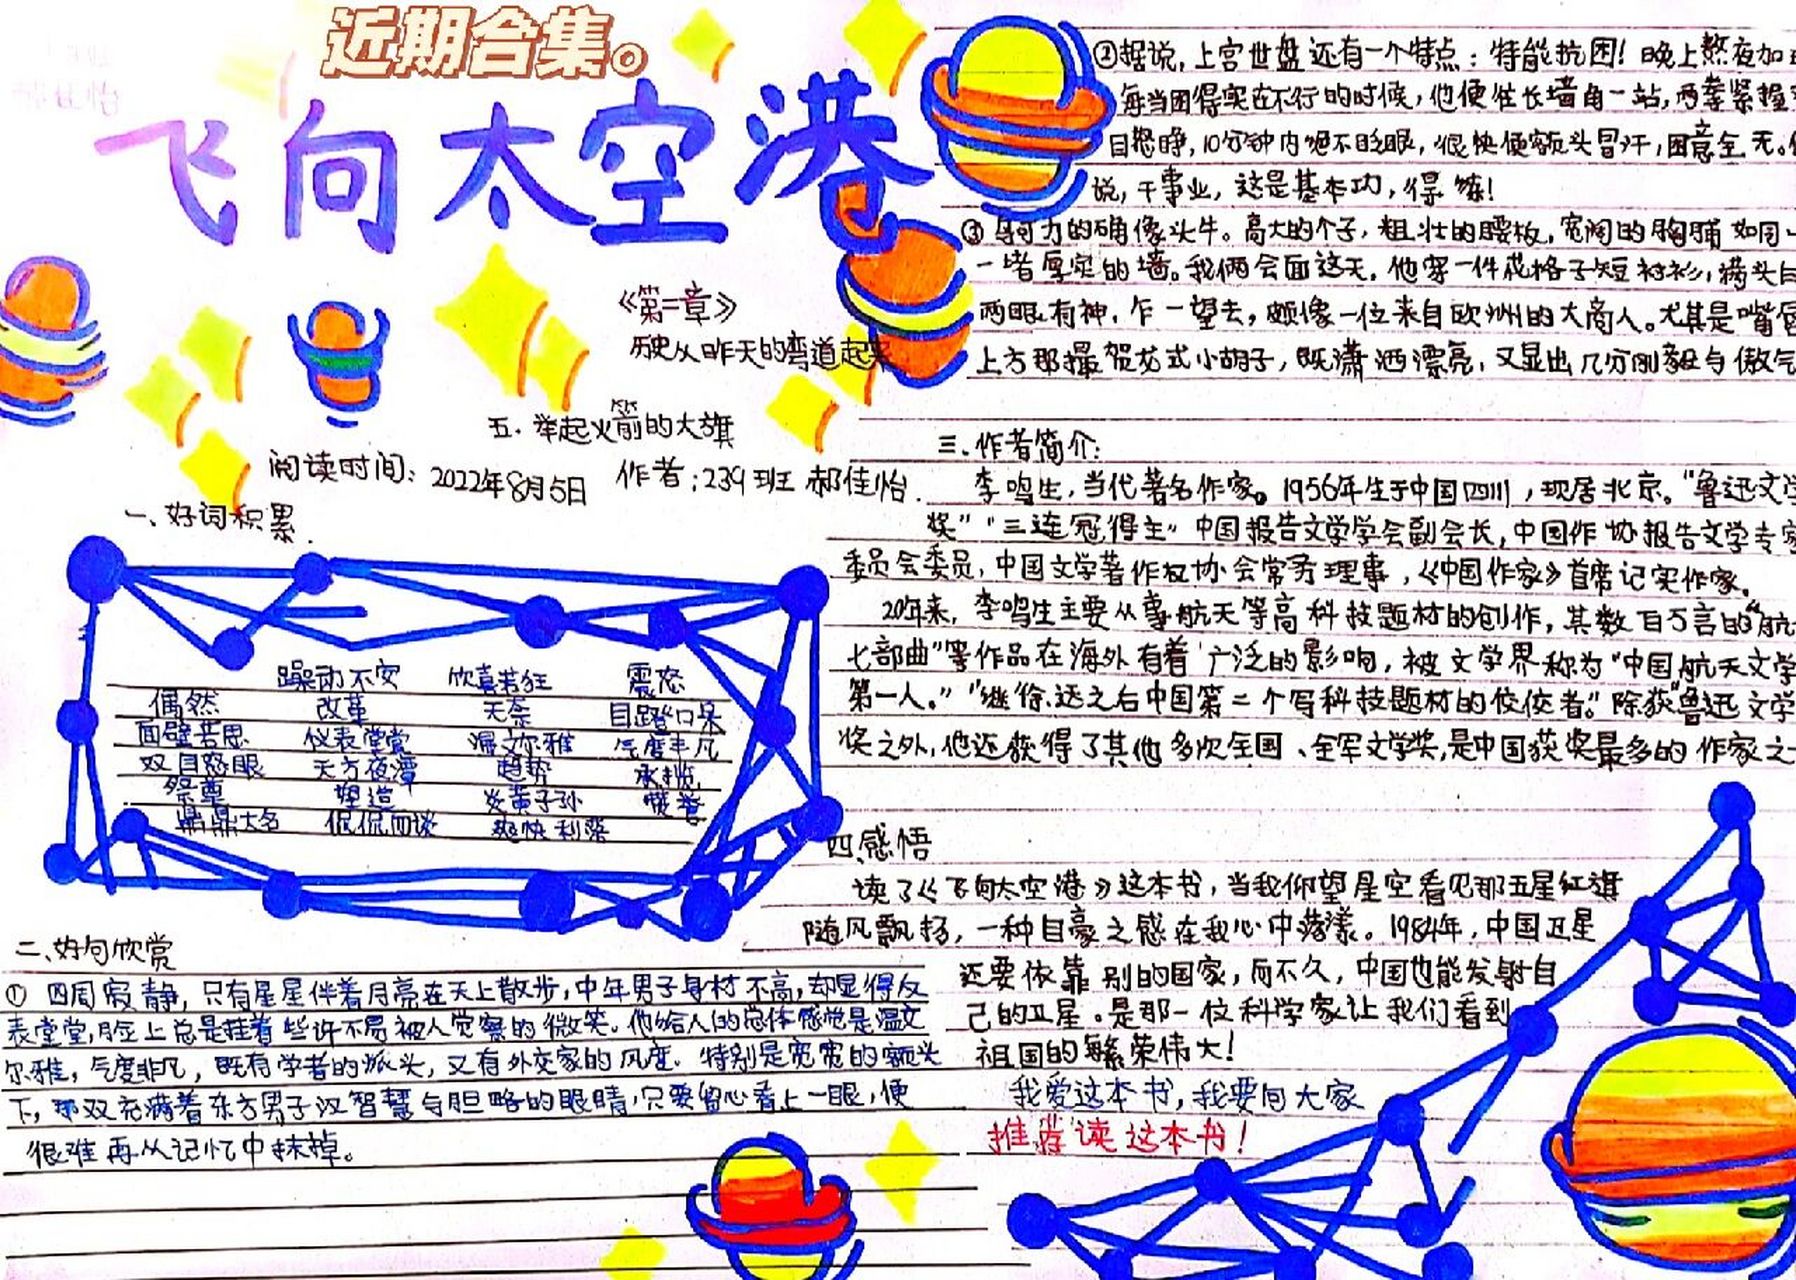 近期合集。
飞向太空港
《第二章》
历史从昨天的弯道起来
五.举起火箭的大旗
阅读时间:2022年8月5日 作者:239班 郝佳怡.
一、好词积累.
躁动不安 欣喜若狂 震怒
偶然 改革 无奈 目瞪口呆
面壁苦思 仪表堂堂 温文尔雅 气度非凡
双目怒眼 天方夜潭 趋势 承揽
祭奠 塑造 炎黄子孙 赞誉
鼎鼎大名 侃侃而谈 爽快利落
二、好句欣赏
① 四周寂静,只有星星伴着月亮在天上散步,中年男子身材不高,却显得仪
表堂堂,脸上总是挂着些许不易被人觉察的微笑。他给人的总体感觉是温文
尔雅,气度非凡,既有学者的派头,又有外交家的风度。特别是宽宽的额头
下,那双充满着东方男子汉智慧与胆略的眼睛,只要留心看上一眼,便
很难再从记忆中抹掉。
②据说,上官世盘还有一个特点:特能抗困!晚上熬夜加
每当困得实在不行的时候,他便往长墙角一站,两拳紧握
目怒睁,10分钟内绝不眨眼,很快便额头冒汗,困意全无。
说,干事业,这是基本功,得练!
③ 乌可力的确像头牛。高大的个子,粗壮的腰板,宽阔的胸脯如同
一堵厚实的墙。我俩会面这天,他穿一件花格子短衬衫,满头白
两眼有神,乍一望去,颇像一位来自欧洲的大商人。尤其是嘴唇
上方那撮贺龙式小胡子,既潇洒漂亮,又显出几分刚毅与傲气
三.作者简介:
李鸣生,当代著名作家。1956年生于中国四川,现居北京。"鲁迅文学
奖""三连冠得主"中国报告文学学会副会长,中国作协报告文学专家
委员会委员,中国文学著作权协会常务理事,《中国作家》首席记实作家。
20年来,李鸣生主要从事航天等高科技题材的创作,其数百万言的"航
七部曲"等作品在海外有着广泛的影响,被文学界称为"中国航天文学
第一人。""继徐迟之后中国第二个写科技题材的佼佼者。"除获"鲁迅文学
奖之外,他还获得了其他多次全国、全军文学奖,是中国获奖最多的作家之一
四.感悟
读了《飞向太空港》这本书,当我仰望星空看见那五星红旗
随风飘扬,一种自豪之感在我心中荡漾。1984年,中国卫星
还要依靠别的国家,而不久,中国也能发射自
己的卫星。是那一位科学家让我们看到
祖国的繁荣伟大!
我爱这本书,我要向大家
推荐读这本书!